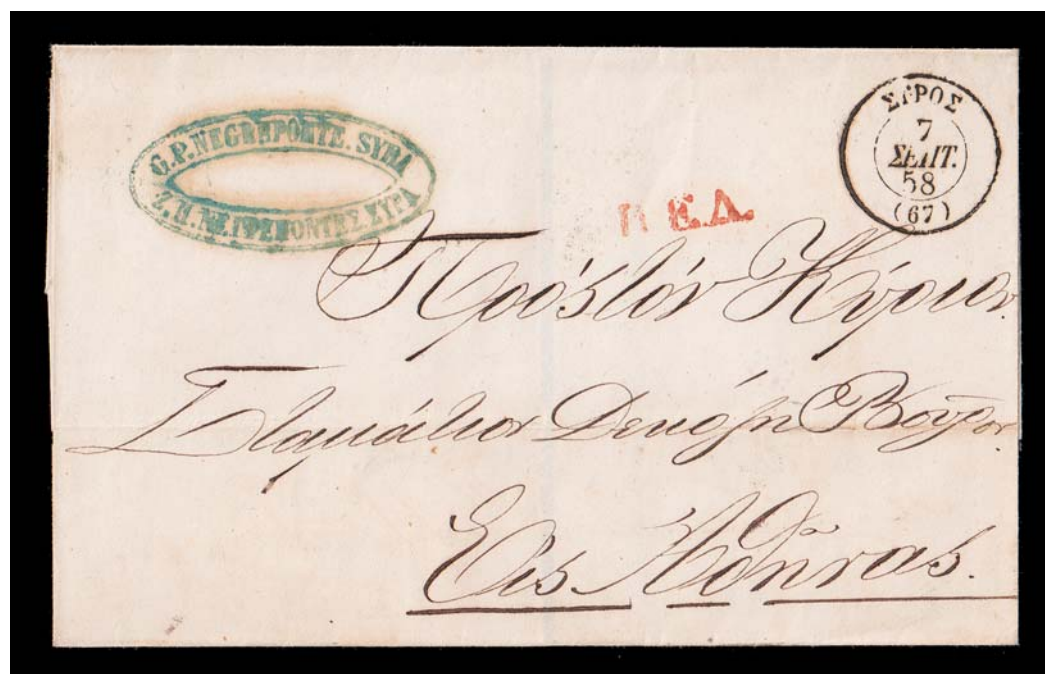 G.P. NEGREPONTE. SYRA
Ζ.Π. ΝΕΓΡΕΠΟΝΤΕΣ. ΣΥΡΑ
ΣΥΡΟΣ
7
ΣΕΠΤ.
58
(67)
Π Ε.Δ.
Πρός τόν Κύριον
Σταμάτιον Δεκόζη Βοῦρον
Εἰς Ἀθήνας.